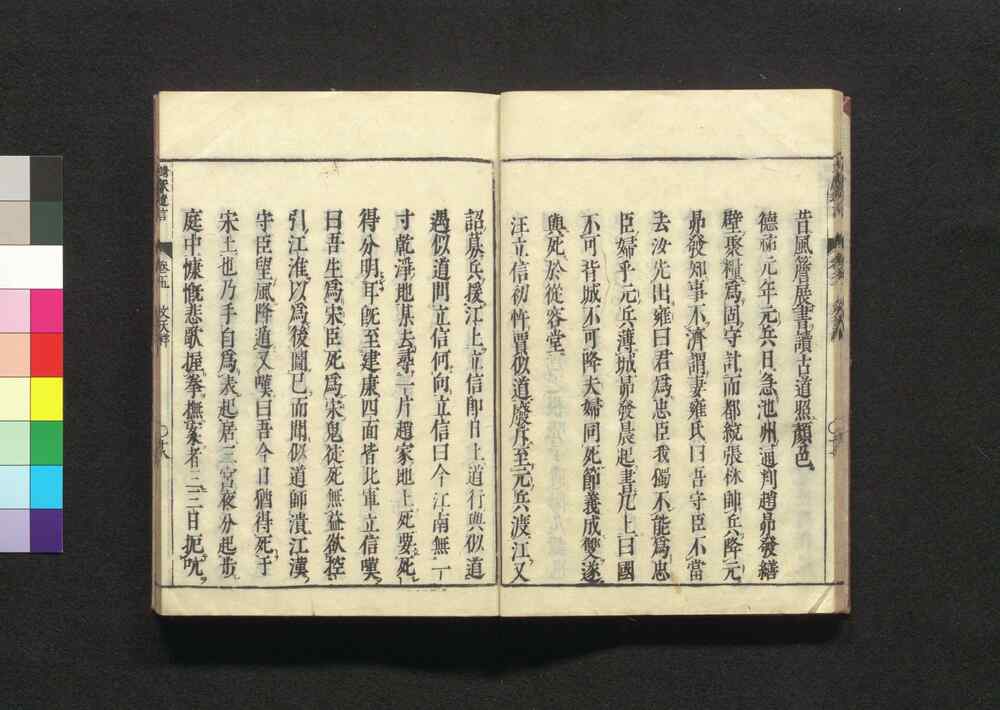 昔風簷展書讀古道照顏色
德祐元年元兵日急池州通判趙昴發繕
壁聚糧爲固守計而都統張林帥兵降元
昴發知事不濟謂妻雍氏曰吾守臣不當
去汝先出雍曰君爲忠臣我獨不能爲忠
臣婦乎元兵薄城昴發晨起書几上曰國
不可背城不可降夫婦同死節義成雙遂
與死於從容堂
汪立信初忤賈似道廢斥至元兵渡江又
詔募兵援江上立信卽日上道行與似道
遇似道問立信何向立信曰今江南無一
寸乾淨地某去尋一片趙家地上死要死
得分明耳旣至建康四面皆北軍立信嘆
曰吾生爲宋臣死爲宋鬼徒死無益欲控
引江淮以爲後圖已而聞似道師潰江漢
守臣望風降遁又嘆曰吾今日猶得死于
宋土也乃手自爲表起居三宮夜分起步
庭中慷慨悲歌握拳撫案者三三日扼吭
卷五 文天祥